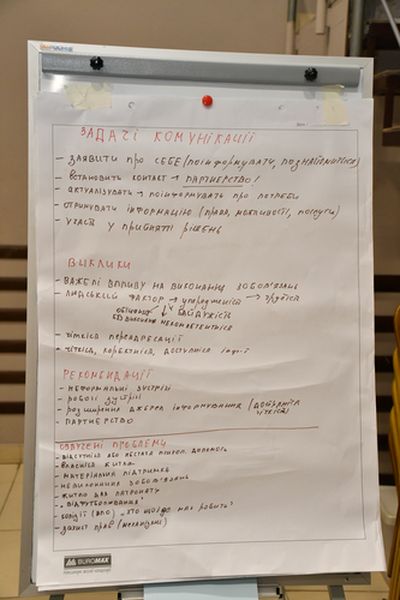 ЗАДАЧІ КОМУНІКАЦІЇ
- ЗАЯВИТИ ПРО СЕБЕ (ПОІНФОРМУВАТИ, ПОЗНАЙОМИТИСЯ)
- ВСТАНОВИТЬ КОНТАКТ → ПАРТНЕРСТВО!
- АКТУАЛІЗУВАТЬ - ПОІНФОРМУВАТЬ ПРО ПОТРЕБИ
- ОТРИМУВАТИ ІНФОРМАЦІЮ (ПРАВА, МОЖЛИВОСТІ, ПОСЛУГИ)
- УЧАСТЬ У ПРИЙНЯТТІ РІШЕНЬ
ВИКЛИКИ
- ВАЖЕЛІ ВПЛИВУ НА ВИКОНАННЯ ЗОБОВ'ЯЗАНЬ
- ЛЮДСЬКИЙ ФАКТОР → УПЕРЕДЖЕНІСТЬ →
БАЙДУЖІСТЬ
НЕКОМПЕТЕНТНІСТЬ
- ЧІТКІСТЬ ПЕРЕАДРЕСАЦІЇ
- ЧІТКІСТЬ, КОРЕКТНІСТЬ, ДОСТУПНІСТЬ
РЕКОМЕНДАЦІЇ
- НЕФОРМАЛЬНІ ЗУСТРІЧІ
- РОБОЧІ ЗУСТРІЧІ
- РОЗШИРЕННЯ ДЖЕРЕЛ ІНФОРМУВАННЯ (ДОСТУПНІСТЬ
ЧІТКІСТЬ)
- ПАРТНЕРСТВО
ОЗВУЧЕНІ ПРОБЛЕМИ
- ВІДСУТНІСТЬ АБО НЕСТАЧА ПСИХОЛ. ДОПОМОГИ
- ВЛАСНІСТЬ ЖИТЛА
- МАТЕРІАЛЬНІ ПІДТРИМКА
- НЕВИКОНАННЯ ЗОБОВ'ЯЗАНЬ
- ЖИТЛО ДЛЯ ПАТРОНАТУ
- "ПІДФУТБОЛЮВАННЯ"
(ВПО) - "ХТО ЩО ДЕ МАЄ РОБИТЬ"
- ЗАХИСТ ПРАВ (МЕХАНІЗМИ)
BUROMAX